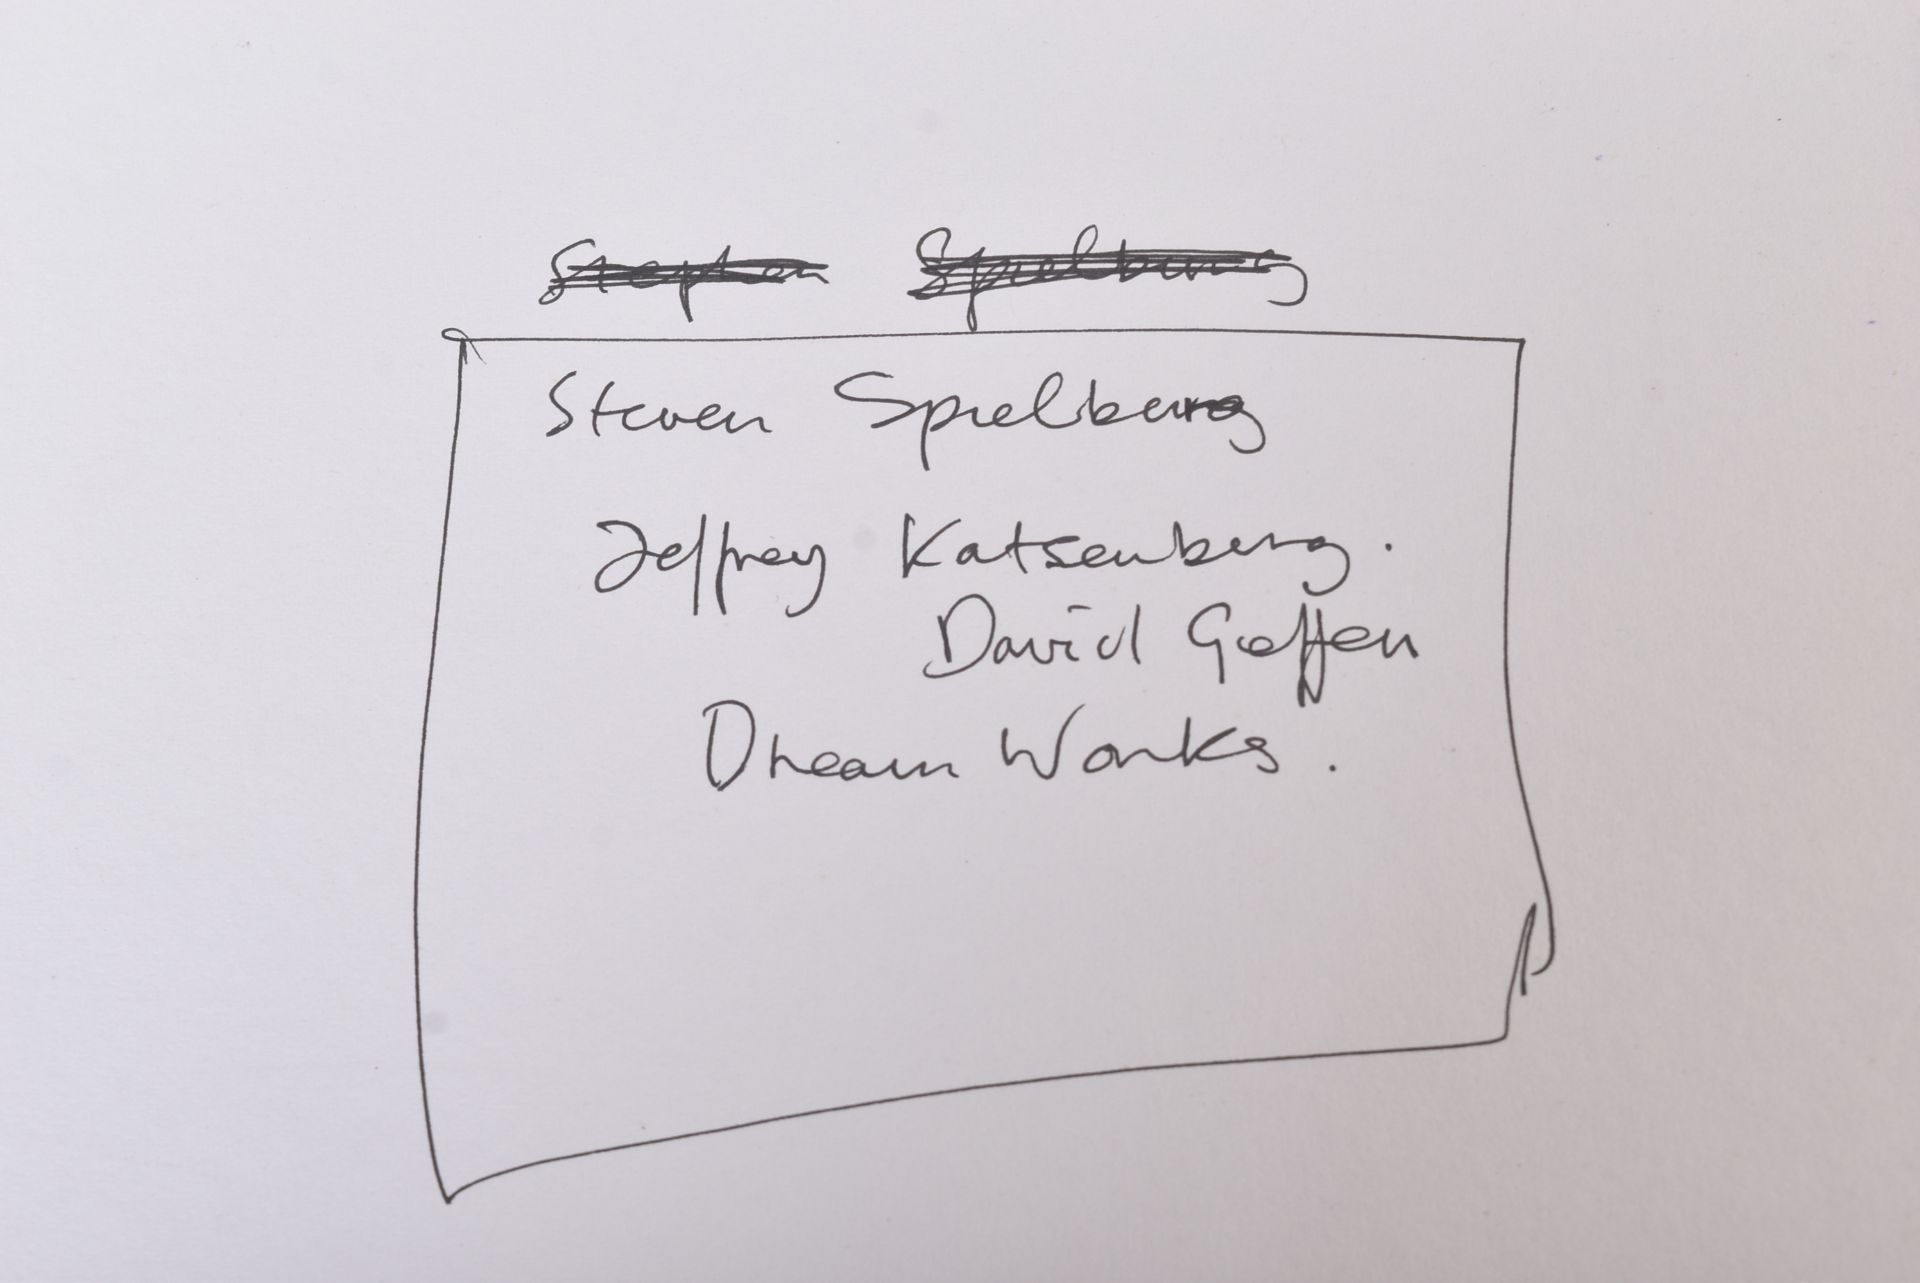 Stephen Spielburg
Steven Spielberg
Jeffrey Katsenberg.
David Geffen
Dream Works.